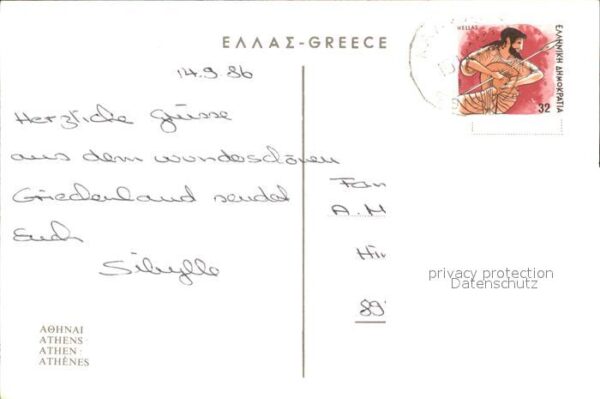 ΕΛΛΑΣ-GREECE
HELLAS
ΕΛΛΗΝΙΚΗ ΔΗΜΟΚΡΑΤΙΑ
32
14.9.86
Herzliche Grüsse
aus dem wunderschönen
Griechenland sendet
Euch
Sibylle
Fam
A. M
Hin
89
privacy protection
Datenschutz
ΑΘΗΝΑΙ
ATHENS
ATHEN
ATHÈNES